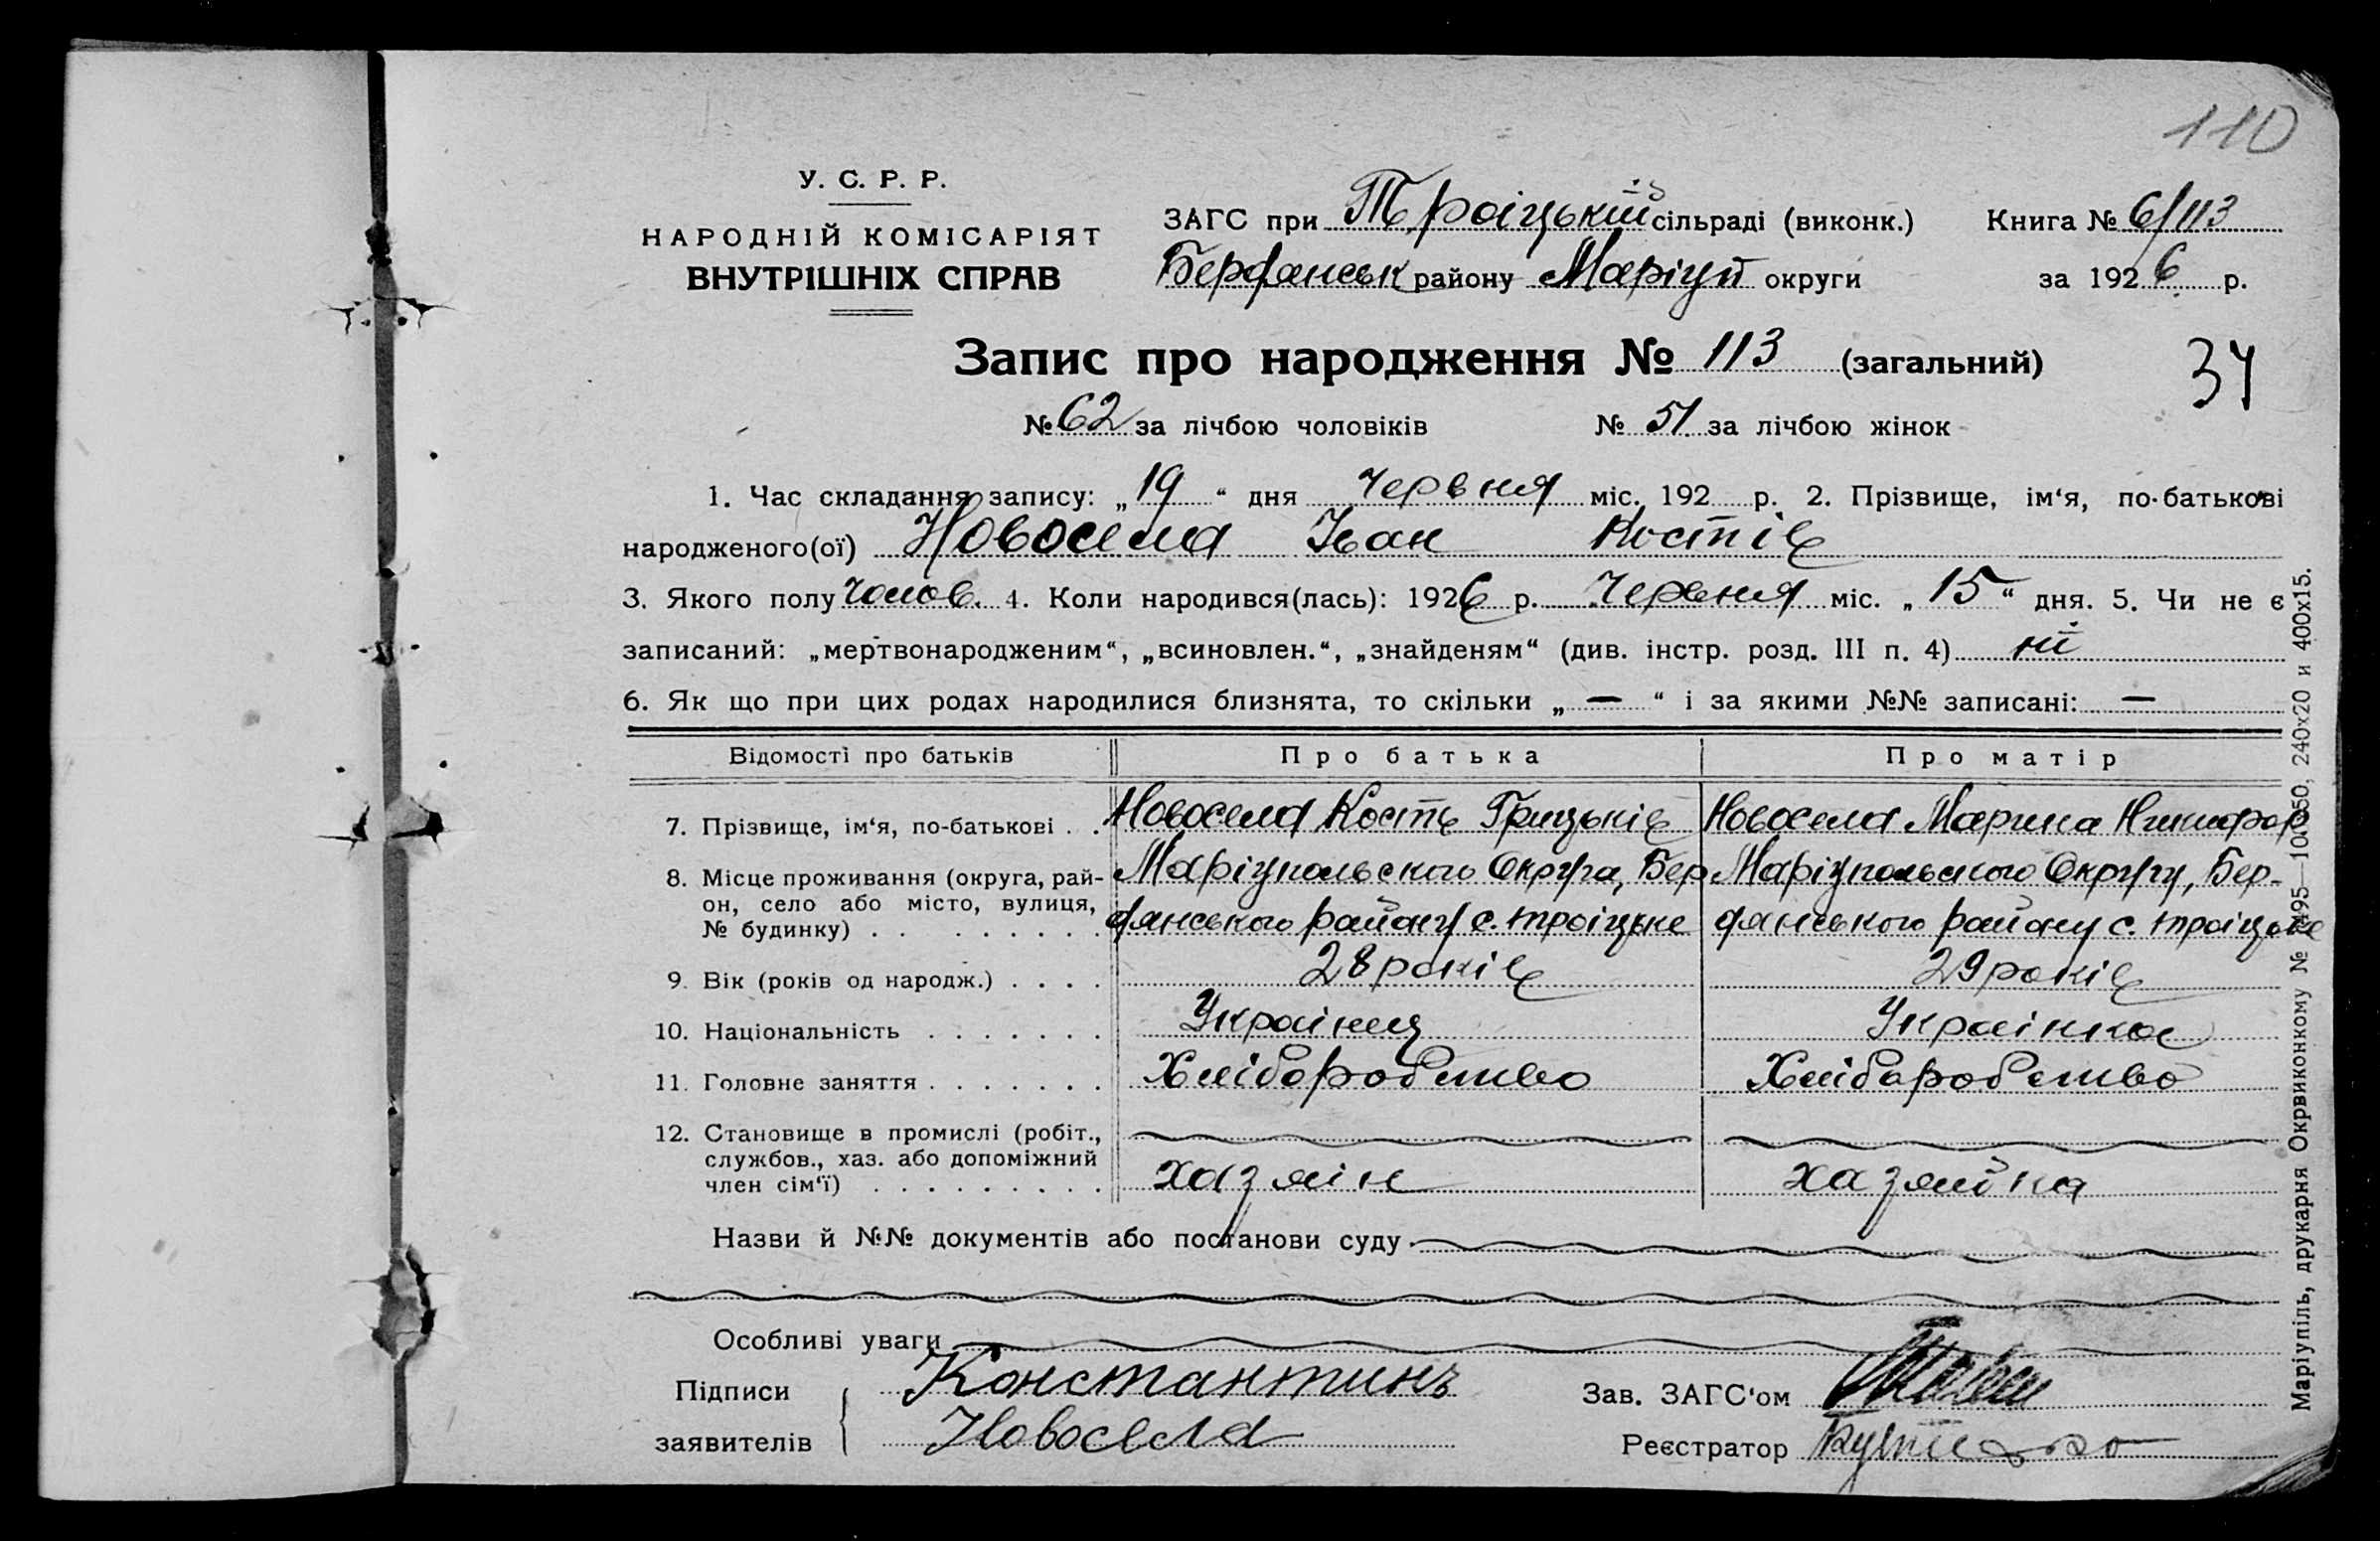 110
У. С. Р. Р.
НАРОДНІЙ КОМІСАРІЯТ
ВНУТРІШНІХ СПРАВ
ЗАГС при Троіцькій сільраді (виконк.) Книга № 6/113
Бердянськ району Маріуп округи за 1926 р.
Запис про народження № 113 (загальний)
34
№ 62 за лічбою чоловіків № 51 за лічбою жінок
1. Час складання запису: „19“ дня Червня міс. 192 р. 2. Прізвище, ім‘я, по-батькові
народженого(ої) Новосела Іван Костів
3. Якого полу чолов. 4. Коли народився(лась): 1926 р. Червня міс. „15“ дня. 5. Чи не є
записаний: „мертвонародженим“, „всиновлен.“, „знайденям“ (див. інстр. розд. III п. 4) ні
6. Як що при цих родах народилися близнята, то скільки „—“ і за якими №№ записані: —
Відомості про батьків Про батька Про матір
7. Прізвище, ім‘я, по-батькові . . Новосела Кость Грицьків Новосела Марина Никифор
8. Місце проживання (округа, рай- Маріупольського Округа, Бер Маріупольського Округу, Бер-
он, село або місто, вулиця,
№ будинку) . . . . . . . . дянського району с. троіцьке дянського району с. троіцьке
9. Вік (років од народж.) . . . . 28 років 29 років
10. Національність . . . . . . . Украінец Украінка
11. Головне заняття . . . . . . . Хліборобство Хлібаробство
12. Становище в промислі (робіт.,
службов., хаз. або допоміжний
член сім‘ї) . . . . . . . . . хазяін хазяйка
Назви й №№ документів або постанови суду
Особливі уваги
Підписи Константинъ Зав. ЗАГС‘ом
заявителів Новосела Реєстратор
Маріупіль, друкарня Окрвиконкому № 240х20 и 400х15.